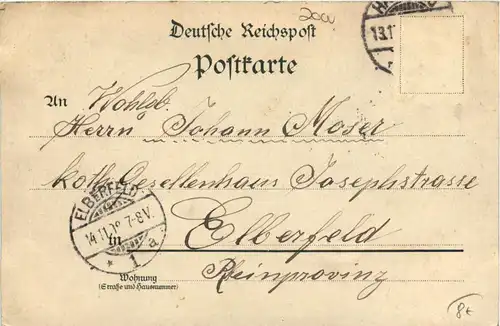 2000
Deutsche Reichspost
Postkarte
13.1
An Wohlgb.
Herrn Johann Moser
kath. Gesellenhaus Josephstrasse
ELBERFELD
14.11. 7-8V.
* 1 a
in Elberfeld
Rheinprovinz
Wohnung
(Straße und Hausnummer)
8€